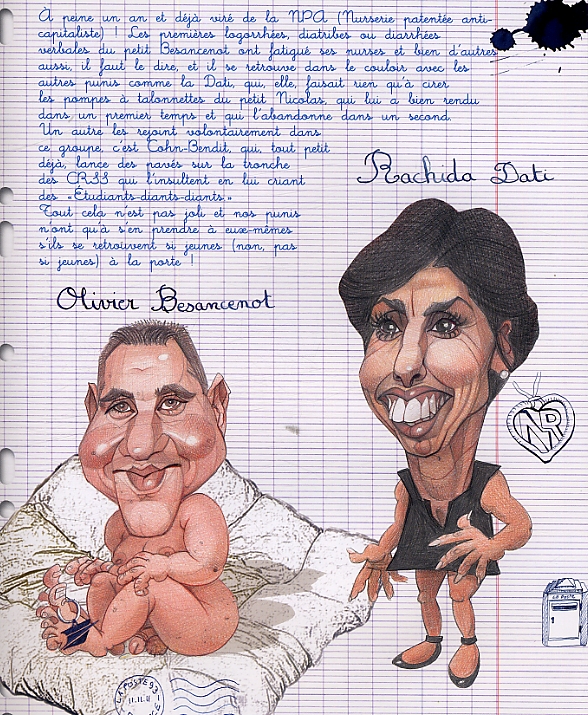 À peine un an et déjà viré de la NPA (Nurserie patentée anti-
capitaliste) ! Les premières logorrhées, diatribes ou diarrhées
verbales du petit Besancenot ont fatigué ses nurses et bien d'autres
aussi, il faut le dire, et il se retrouve dans le couloir avec les
autres punis comme la Dati, qui, elle, faisait rien qu'à cirer
les pompes à talonnettes du petit Nicolas, qui lui a bien rendu
dans un premier temps et qui l'abandonne dans un second.
Un autre les rejoint volontairement dans
ce groupe, c'est Cohn-Bendit, qui, tout petit
déjà, lance des pavés sur la tronche
des CRSS qui l'insultent en lui criant
des «Étudiants-diants-diants.»
Tout cela n'est pas joli et nos punis
n'ont qu'à s'en prendre à eux-mêmes
s'ils se retrouvent si jeunes (non, pas
si jeunes) à la porte !
Rachida Dati
Olivier Besancenot
NR
LA POSTE
LA POSTE 93
11.11.11